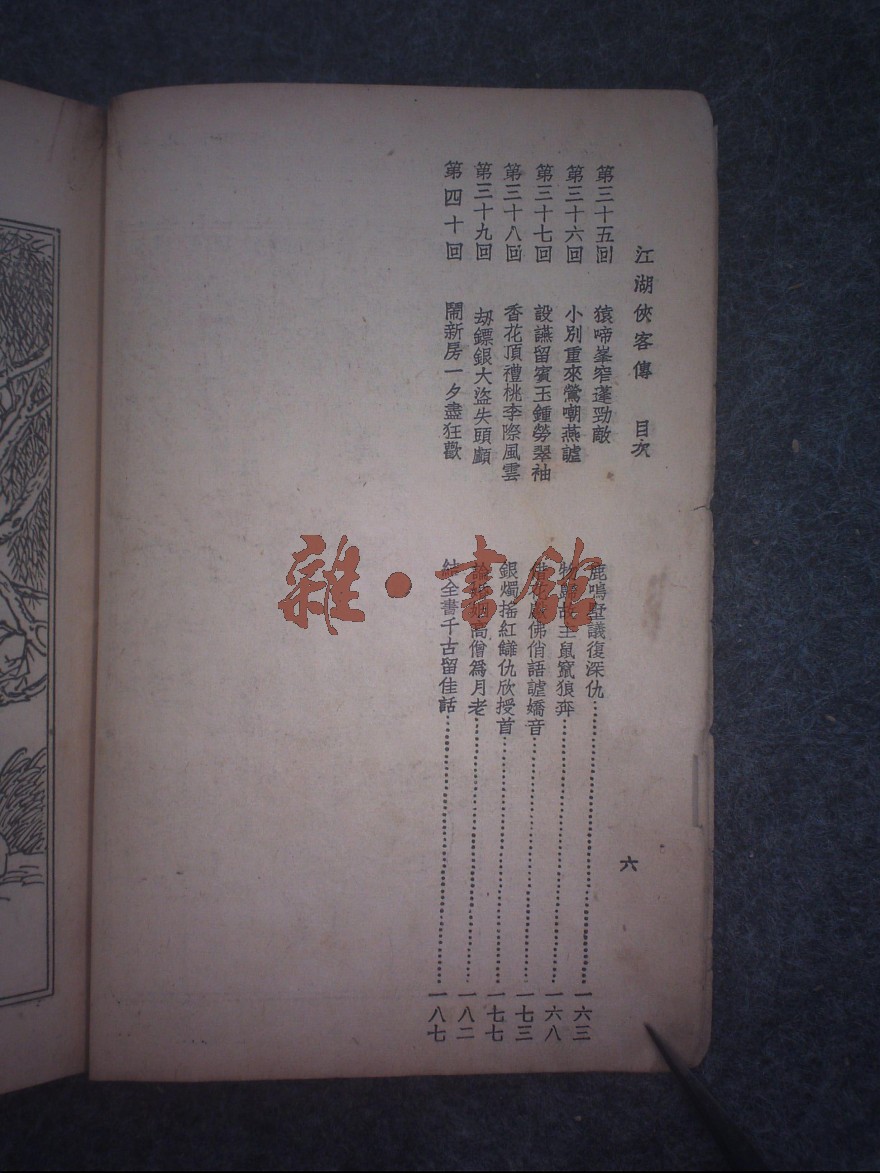 江湖俠客傳 目次 六
第三十五回 猿啼峯窄逢勁敵 鹿鳴墅議復深仇 一六三
第三十六回 小別重來鶯嘲燕謔 物歸故主鼠竄狼奔 一六八
第三十七回 設讌留賓玉鍾勞翠袖 借花獻佛俏語謔嬌音 一七三
第三十八回 香花頂禮桃李際風雲 銀燭搖紅讎仇欣授首 一七七
第三十九回 刼鏢銀大盜失頭顱 姻高僧爲月老 一八二
第四十回 鬧新房一夕盡狂歡 結全書千古留佳話 一八七
雜·書館